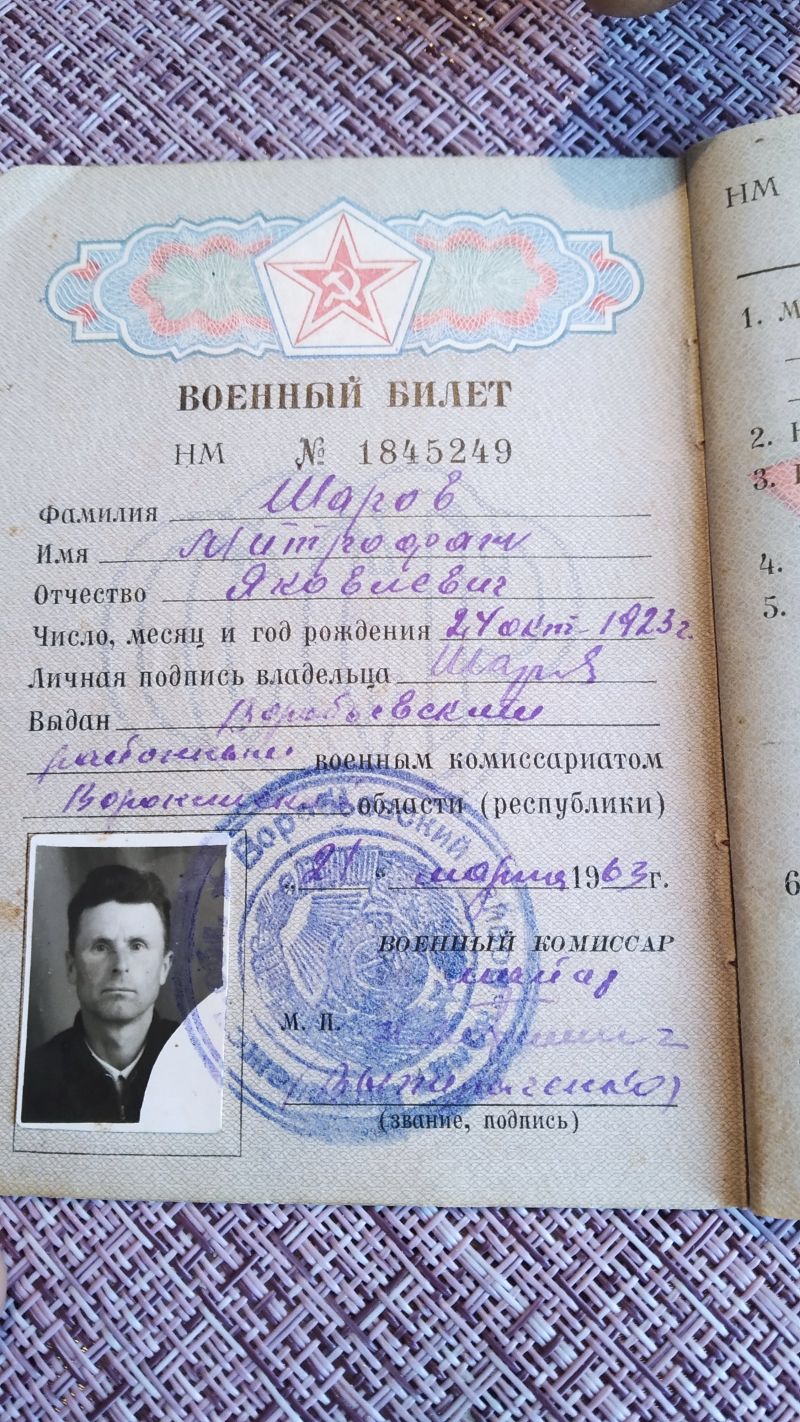 ВОЕННЫЙ БИЛЕТ
НМ № 1845249
Фамилия Шаров
Имя Митрофан
Отчество Яковлевич
Число, месяц и год рождения 24 окт 1923 г.
Личная подпись владельца Шаров
Выдан Воробьевским
районным военным комиссариатом
Воронежской области (республики)
„21“ марта 1963 г.
ВОЕННЫЙ КОМИССАР
майор
М. П.
(звание, подпись)
НМ
1. М
2. Н
3.
4.
5.
6